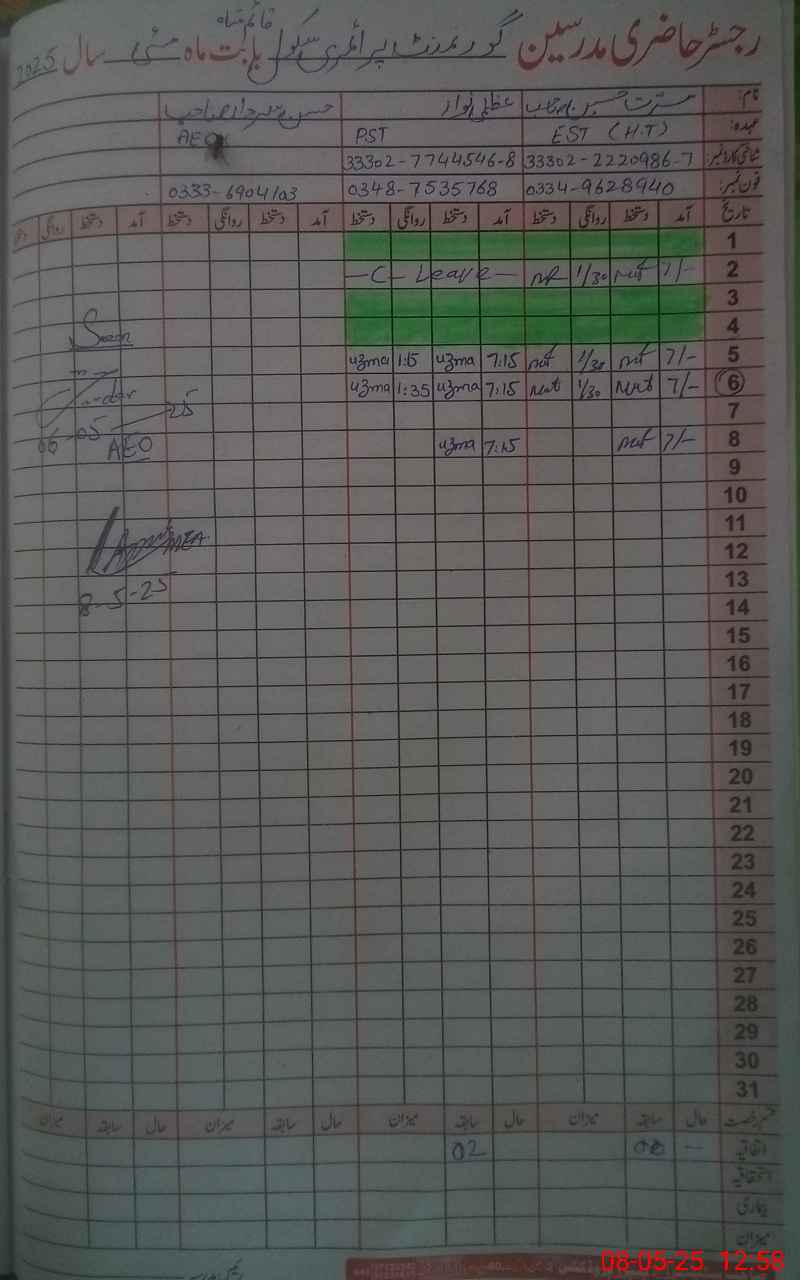 قائم شاہ
رجسٹر حاضری مدرسین گورنمنٹ پرائمری سکول بابت ماہ مئی سال 2025
نام: مسرت حسین صاحب عظمیٰ نواز
عہدہ: EST (H.T) PST AEO
شناختی کارڈ نمبر: 33302-2220986-7 33302-7744546-8
فون نمبر: 0334-9628940 0348-7535768 0333-6904103
تاریخ آمد دستخط روانگی دستخط آمد دستخط روانگی دستخط آمد دستخط روانگی دستخط آمد دستخط روانگی
1
2 7/- 1/30 — C — Leave —
3
4
Seen
5 7/- 1/30 7:15 uzma 1:15 uzma
6 7/- 1/30 7:15 uzma 1:35 uzma
7
06-05-25
8 7/- 7:15 uzma
AEO
9
10
11
12 MEA
13
8-5-25
14
15
16
17
18
19
20
21
22
23
24
25
26
27
28
29
30
31
حال سابقہ میزان حال سابقہ میزان حال سابقہ میزان حال سابقہ میزان
اتفاقیہ — 02
استحقاقیہ
بیماری
میزان
08-05-25 12:58